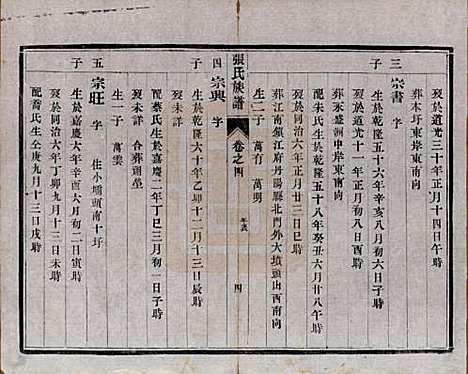 歿於道光三十年正月十四日午時
葬本圩東岸東南向
三子 宗書 字
生於乾隆五十六年辛亥八月初六日子時
歿於道光十一年正月初八日酉時
葬永盛洲中岸東南向
配朱氏生於乾隆五十八年癸丑六月廿八午時
歿於同治四年正月廿三日巳時
葬江南鎮江府丹陽縣北門外大墳頭山西南向
生二子 萬有 萬明
張氏族譜 卷之四 四
四子 宗興 字
生於乾隆六十年乙卯十二月十三日辰時
歿未詳
配蔡氏生於嘉慶二年丁巳三月初一日子時
歿未詳 合葬頭塋
生一子 萬雲
五子 宗旺 字 住小埔頭南十圩
生於嘉慶六年辛酉六月初二日寅時
歿於同治六年丁卯九月十二日未時
配喬氏生庚九月十三日戌時